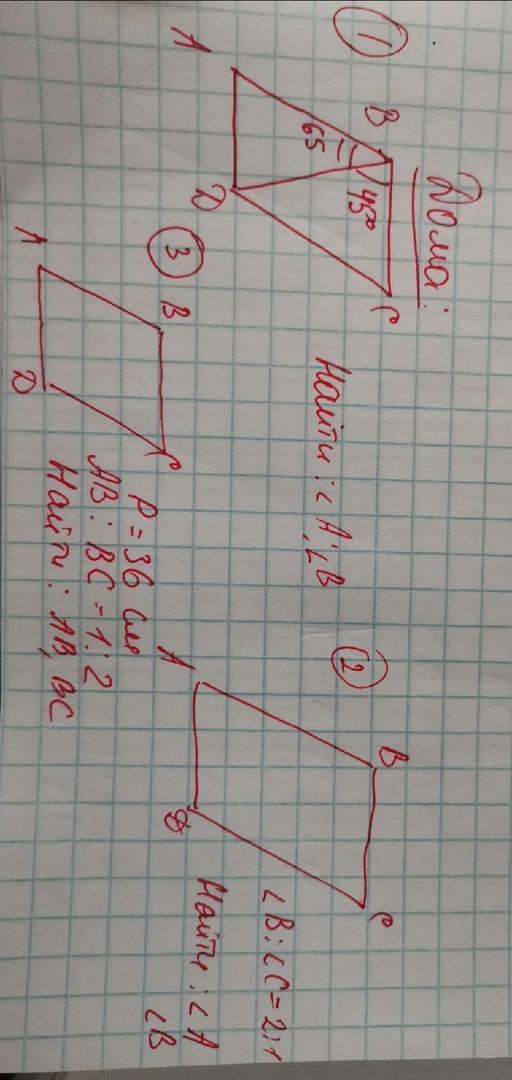 Дома:
①
A
B
C
D
65
45°
Найти: ∠A, ∠B
②
A
B
C
D
∠B:∠C=2:1
Найти: ∠A
∠B
③
A
B
C
D
P=36 см
AB:BC=1:2
Найти: AB, BC